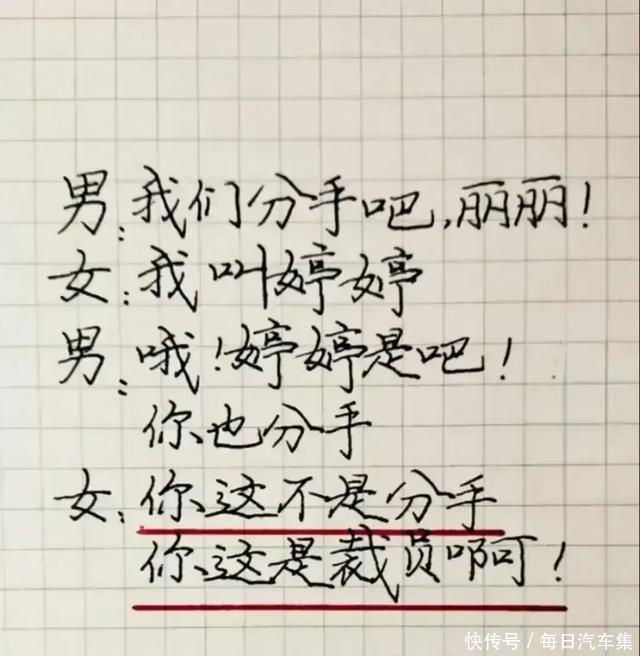 男：我们分手吧，丽丽！
女：我叫婷婷
男：哦！婷婷是吧！
你也分手
女：你这不是分手
你这是裁员啊！
快传号／每日汽车集